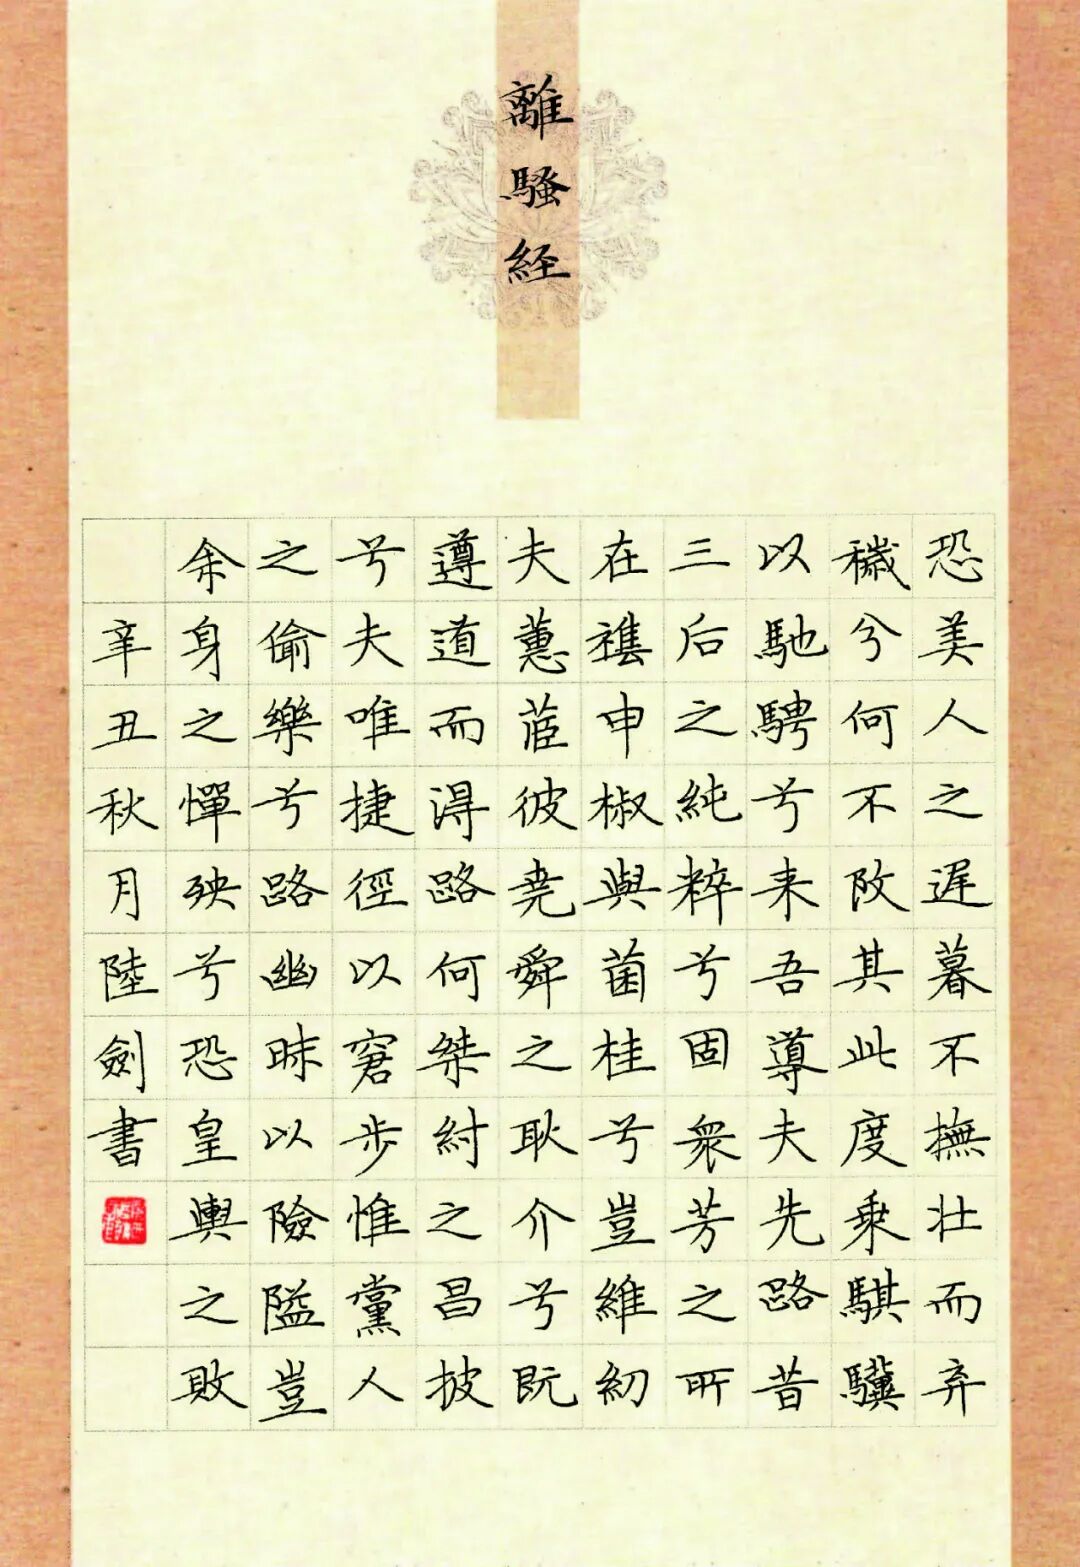 離騷経
恐美人之遅暮不撫壮而弃
穢兮何不改其此度乘騏驥
以馳騁兮来吾導夫先路昔
三后之純粹兮固衆芳之所
在襍申椒與菌桂兮豈維紉
夫蕙茝彼尭舜之耿介兮既
遵道而淂路何桀紂之昌披
兮夫唯捷徑以窘步惟黨人
之偷樂兮路幽昧以險隘豈
余身之憚殃兮恐皇輿之敗
辛丑秋月陸劍書